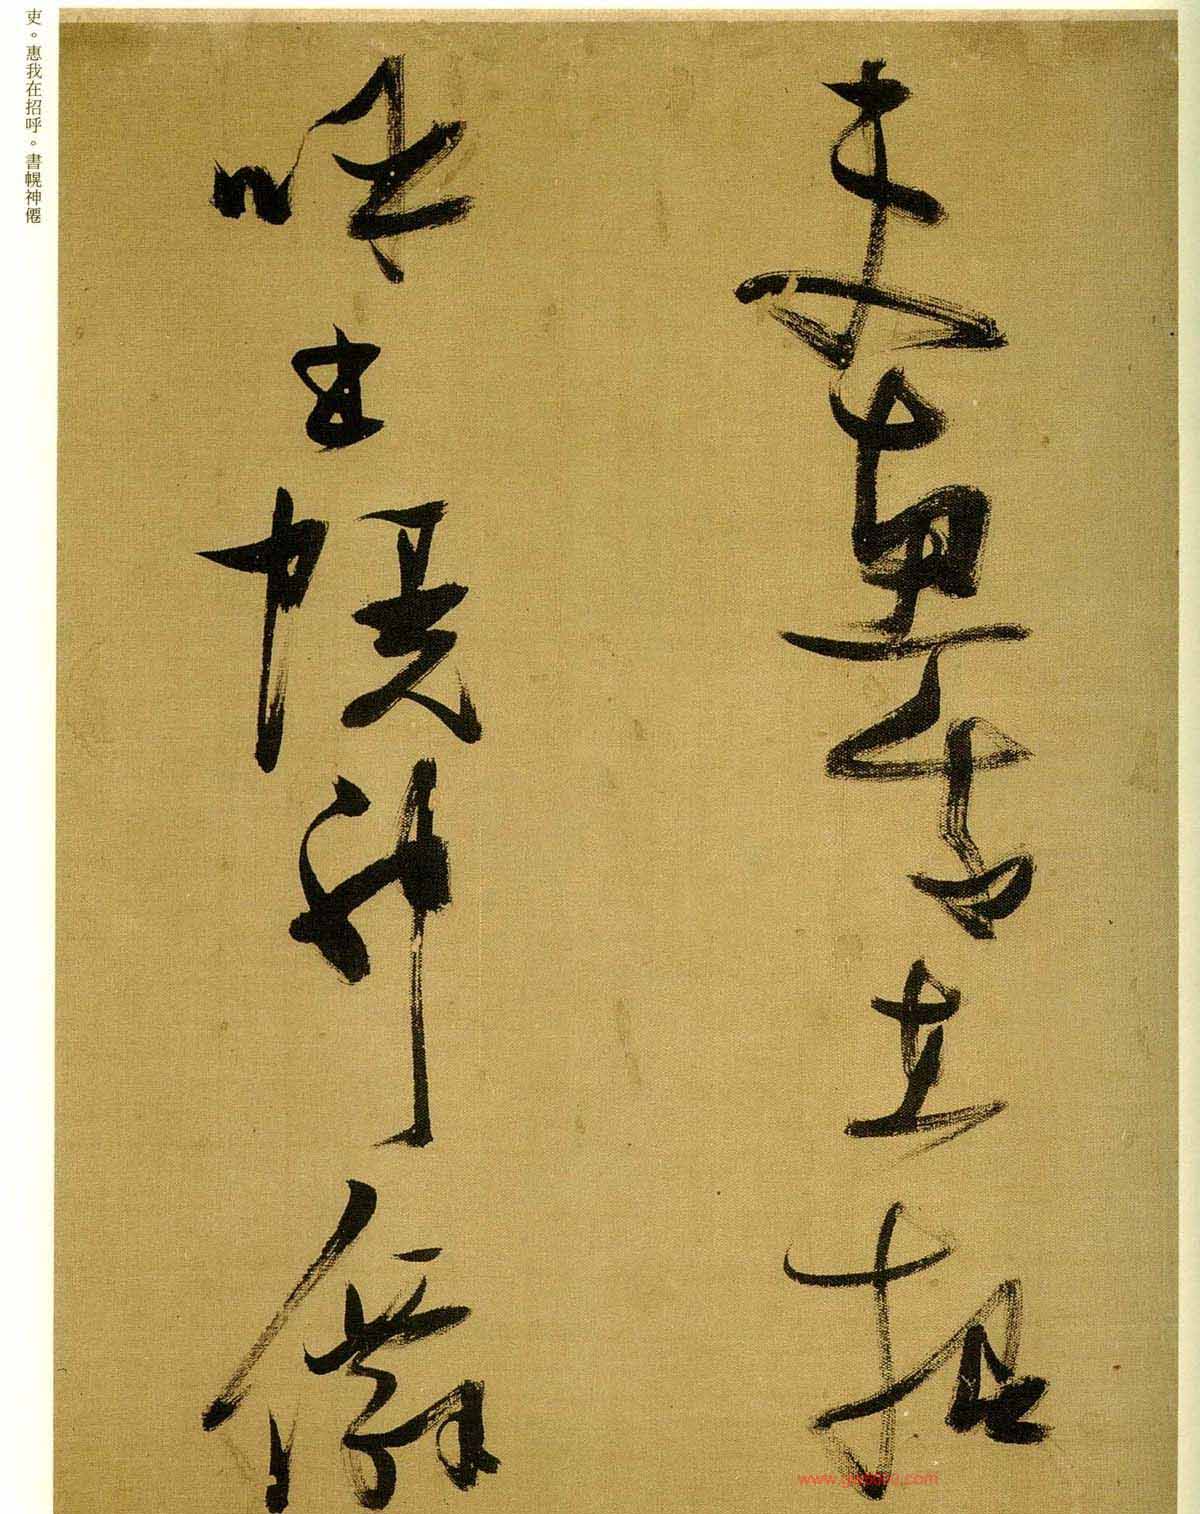 吏惠我在招
呼書幌神僊
吏。惠我在招呼。書幌神僊